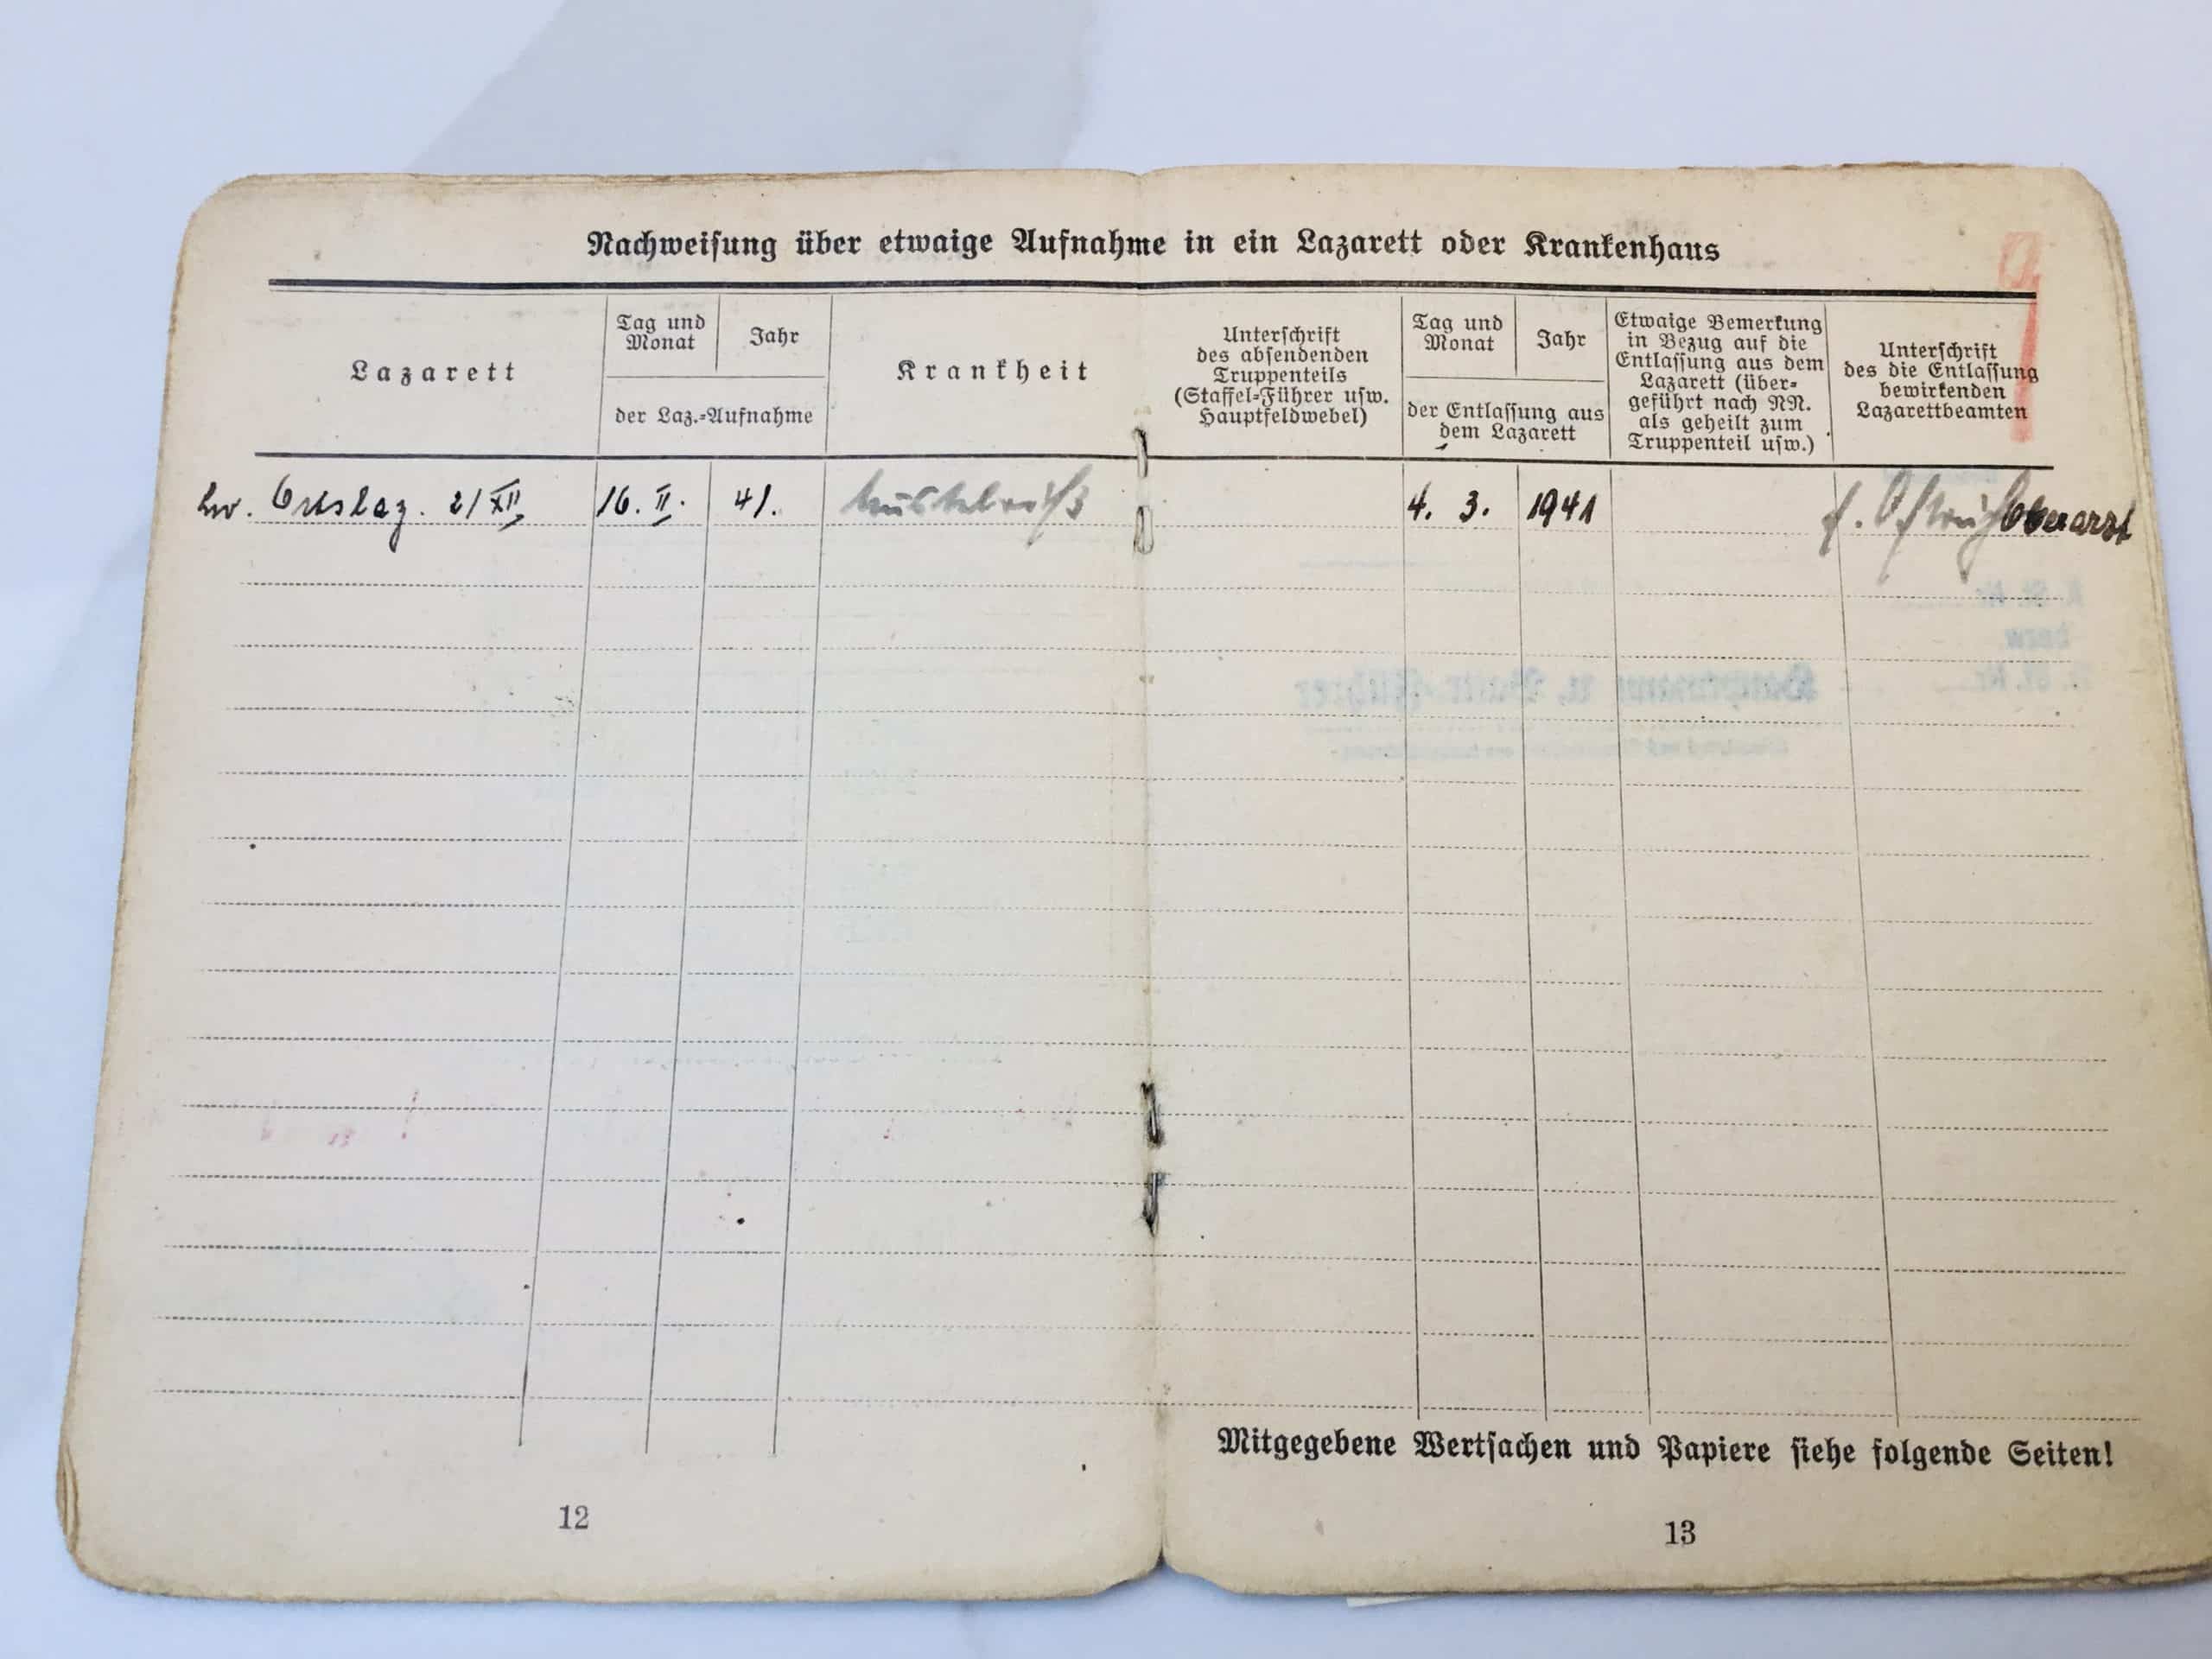 Nachweisung über etwaige Aufnahme in ein Lazarett oder Krankenhaus
Lazarett
Tag und
Monat
Jahr
der Laz.-Aufnahme
Krankheit
Unterschrift
des absendenden
Truppenteils
(Staffel-Führer usw.
Hauptfeldwebel)
Tag und
Monat
Jahr
der Entlassung aus
dem Lazarett
Etwaige Bemerkung
in Bezug auf die
Entlassung aus dem
Lazarett (über-
geführt nach NN.
als geheilt zum
Truppenteil usw.)
Unterschrift
des die Entlassung
bewirkenden
Lazarettbeamten
Ortslaz. 2/XII 16. II. 41. Muskelriß 4. 3. 1941 Oberarzt
Mitgegebene Wertsachen und Papiere siehe folgende Seiten!
12
13